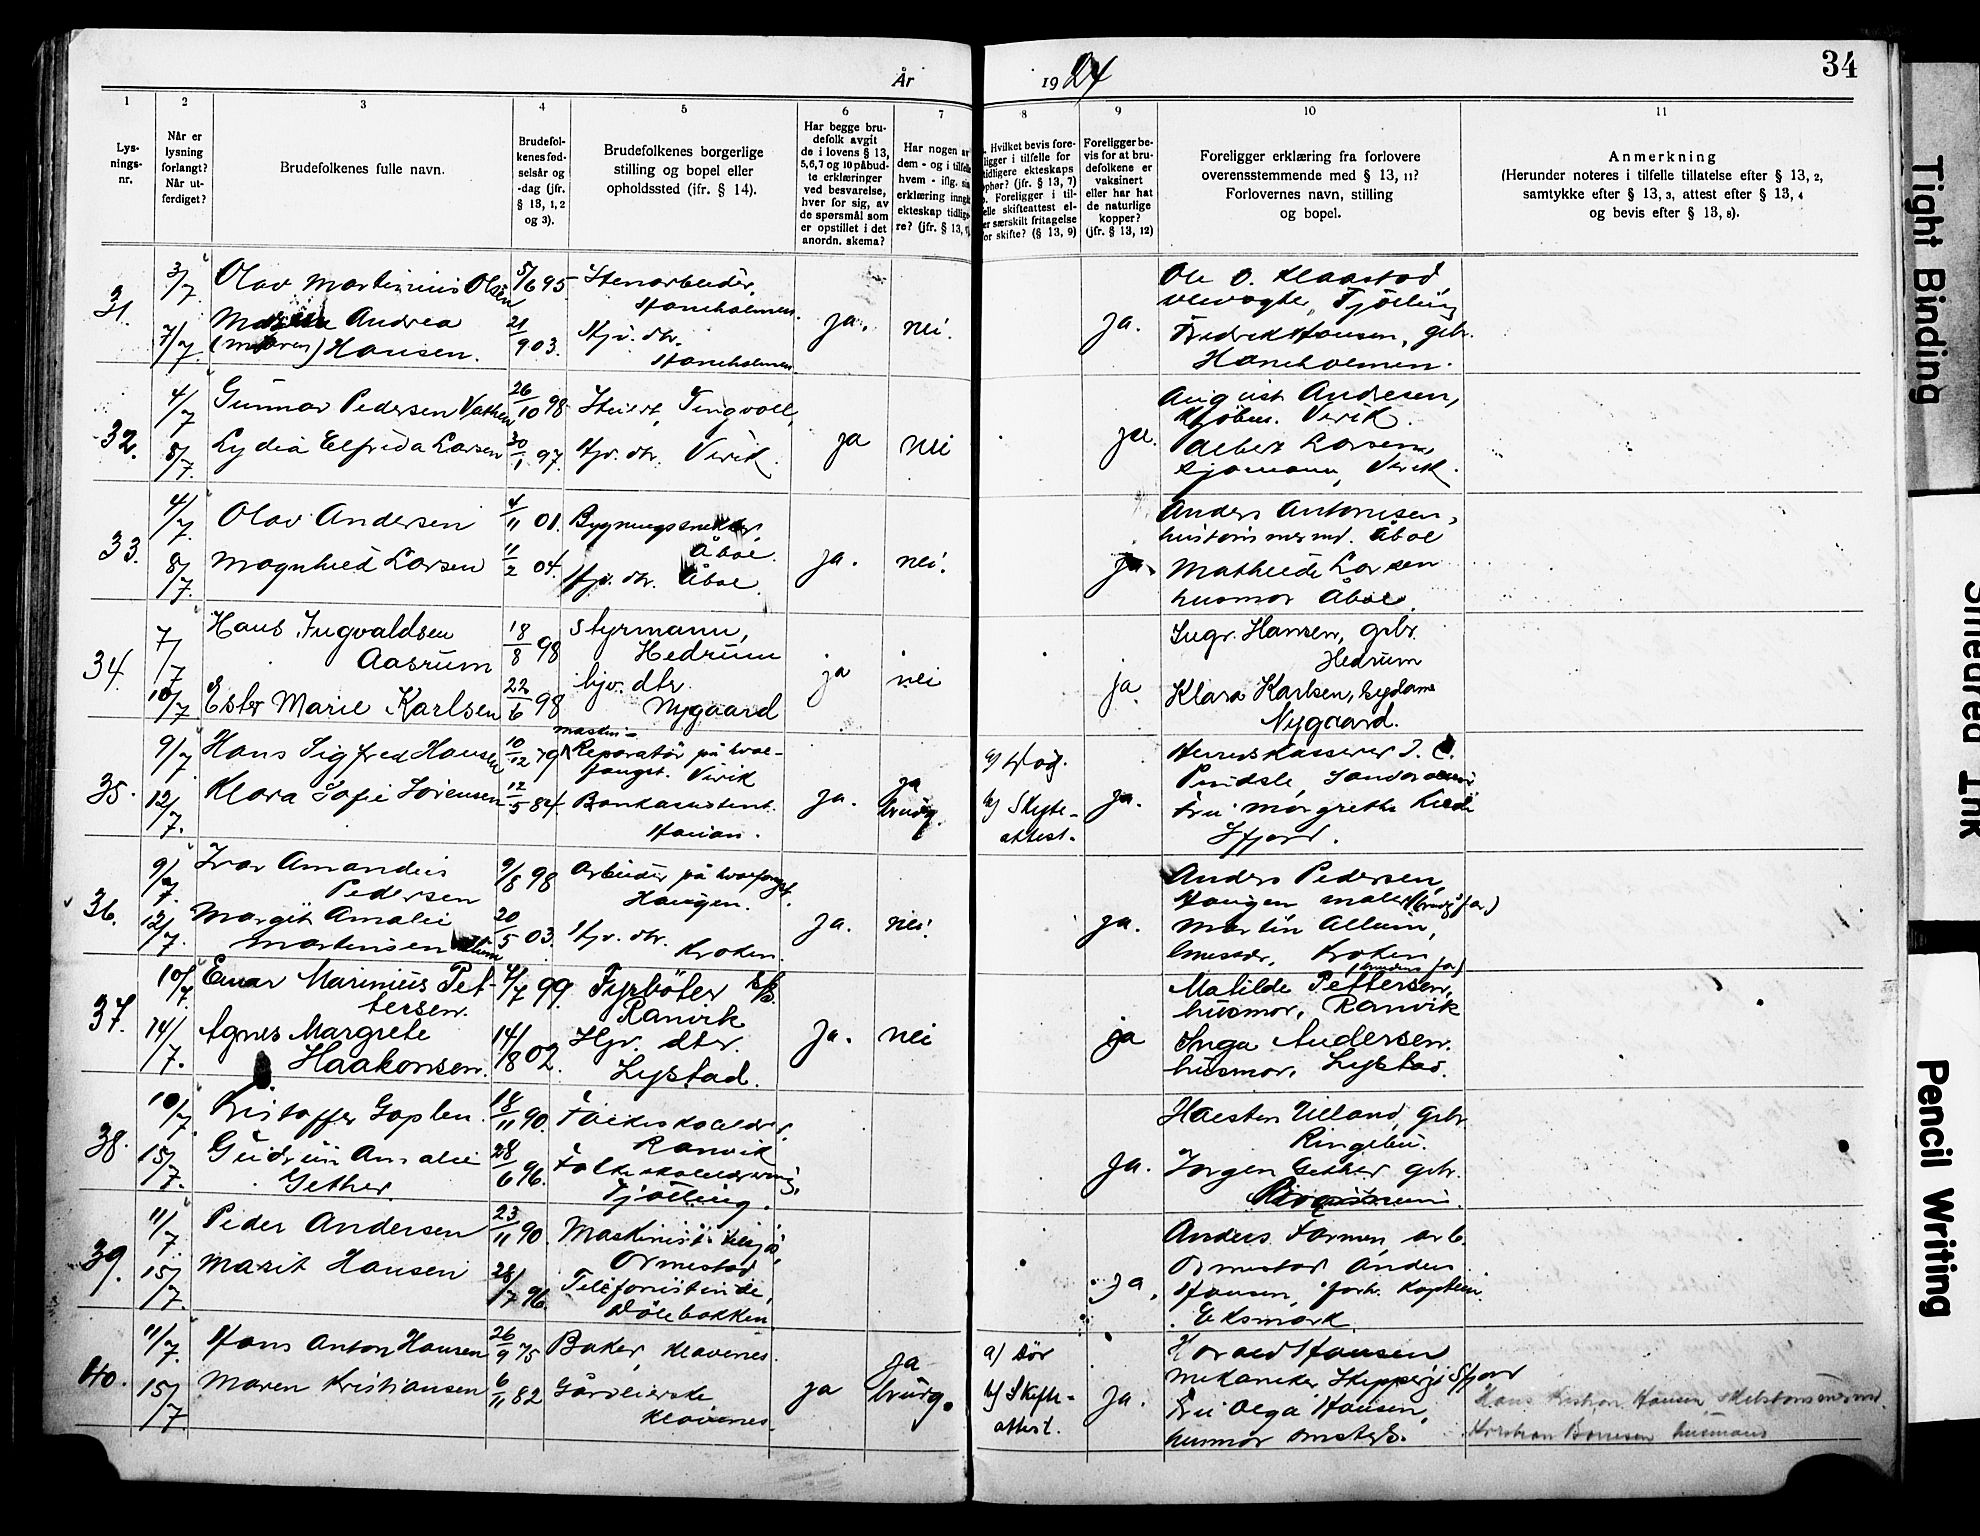 År 1924
34
1
2
3
4
5
6
7
8
9
10
11
Lys-
nings-
nr.
Når er
lysning
forlangt?
Når ut-
ferdiget?
Brudefolkenes fulle navn.
Brudefol-
kenes fød-
selsår og
-dag (jfr.
§ 13, 1, 2
og 3).
Brudefolkenes borgerlige
stilling og bopel eller
opholdssted (jfr. § 14).
Har begge bru-
defolk avgit
de i lovens § 13,
5,6,7 og 10 påbud-
te erklæringer
ved besvarelse,
hver for sig, av
de spørsmål som
er opstillet i det
anordn. skema?
Har nogen av
dem - og i tilfelle
hvem - iflg. sin
erklæring inngått
ekteskap tidlige-
re? (jfr. § 13,
Hvilket bevis fore-
ligger i tilfelle for
tidligere ekteskaps
ophør? (jfr. § 13, 7)
Foreligger i til-
felle skifteattest el-
ler særskilt fritagelse
for skifte? (§ 13, 9)
Foreligger be-
vis for at bru-
defolkene er
vaksinert
eller har hat
de naturlige
kopper?
(jfr. § 13, 12)
Foreligger erklæring fra forlovere
overensstemmende med § 13, 11?
Forlovernes navn, stilling
og bopel.
Anmerkning
(Herunder noteres i tilfelle tillatelse efter § 13, 2,
samtykke efter § 13, 3, attest efter § 13, 4
og bevis efter § 13, 8).
31.
3/7
7/7.
Olav Martinius Olsen
Andrea
(Maren) Hansen.
5/6 95
21/9 03.
Stenarbeider,
Haneholmen.
Hjv. dtr.
Haneholmen.
ja.
nei.
ja.
Ole O. Klaastad,
Tjølling
Fredrik Hansen, gbr.
Haneholmen.
32.
4/7
8/7.
Gunnar Pedersen
Lydia Elfrida Larsen
26/10 98
30/1 97.
Stuert, Tingvoll,
Hjv. dtr. Virik.
ja
nei
ja.
August Andresen,
Virik.
Albert Larsen,
sjømann, Virik.
33.
4/7.
8/7.
Olav Andersen
Magnhild Larsen
4/11 01.
11/2 04.
Bygningssnekker,
Åboe.
Hjv. dtr. Åboe.
ja.
nei.
ja.
Anders Antonisen,
hustømmermd. Åboe
Mathilde Larsen
husmor Åboe.
34.
7/7
10/7
Hans Ingvaldsen
Aasrum
Ester Marie Karlsen
18/8 98
22/6 98
Styrmann,
Hedrum
hjv. dtr.
Nygaard
ja
nei
ja.
Ingv. Hansen, gbr.
Hedrum
Klara Karlsen, sydame
Nygaard.
35.
9/7.
12/7.
Hans Sigfred Hansen
Klara Sofie Sørensen
10/12 79
12/5 84.
maskin-
Reparatør på hval-
fangst. Virik
Bankassistent.
Havian.
ja.
ja
brudg.
a) Død.
b) Skifte-
attest.
ja.
Herredskasserer J. C.
Pindsle, Sandar
Fru Margrethe Lied
Sfjord.
36.
9/7.
12/7.
Ivar Amandus
Pedersen
Margit Amalie
Martinsen Allum
9/8 98
20/5 03.
Arbeider på hvalfangst.
Haugen.
Hjv. dtr.
Kroken.
ja.
nei.
ja.
Anders Pedersen,
Haugen maler (brudg. far)
Martin Allum,
Kroken
(brudens far)
37.
10/7.
14/7.
Einar Marinius Pet-
tersen.
Agnes Margrete
Haakonsen.
4/7 99.
14/8 02.
Fyrbøter
Ranvik
Hjv. dtr.
Lystad.
Ja.
nei
ja
Matilde Pettersen,
husmor, Ranvik
Inga Andersen.
husmor. Lystad.
38.
10/7.
15/7.
Kristoffer Goplen.
Gudrun Amalie
Gether.
18/11 90.
28/6 96.
Folkeskolelærer,
Ranvik
Folkeskolelærerinne,
Tjølling.
ja.
Ulland, gbr.
Ringebu.
Jørgen Gether gbr.
39.
11/7.
15/7.
Peder Andersen
Marit Hansen
23/11 90.
28/7 96.
Maskinist
Ormestad
Telefonistinde,
Dølebakken
ja.
Anders Formen, arb.
Ormestad Anders
Hansen, forh. kaptein.
Eksmark.
40.
11/7.
15/7
Hans Anton Hansen
Maren Kristiansen
26/9 75
6/11 82
Baker, Klavenes.
Gårdeierske
Klavenes
ja
ja
brudg.
a) dør
b) Skifte-
attest.
ja.
Harald Hansen
mekaniker, Sfjord
Fru Olga Hansen,
husmor
Hans Kristian Hansen,
Kristian
Tight Binding
Smeared Ink
Pencil Writing